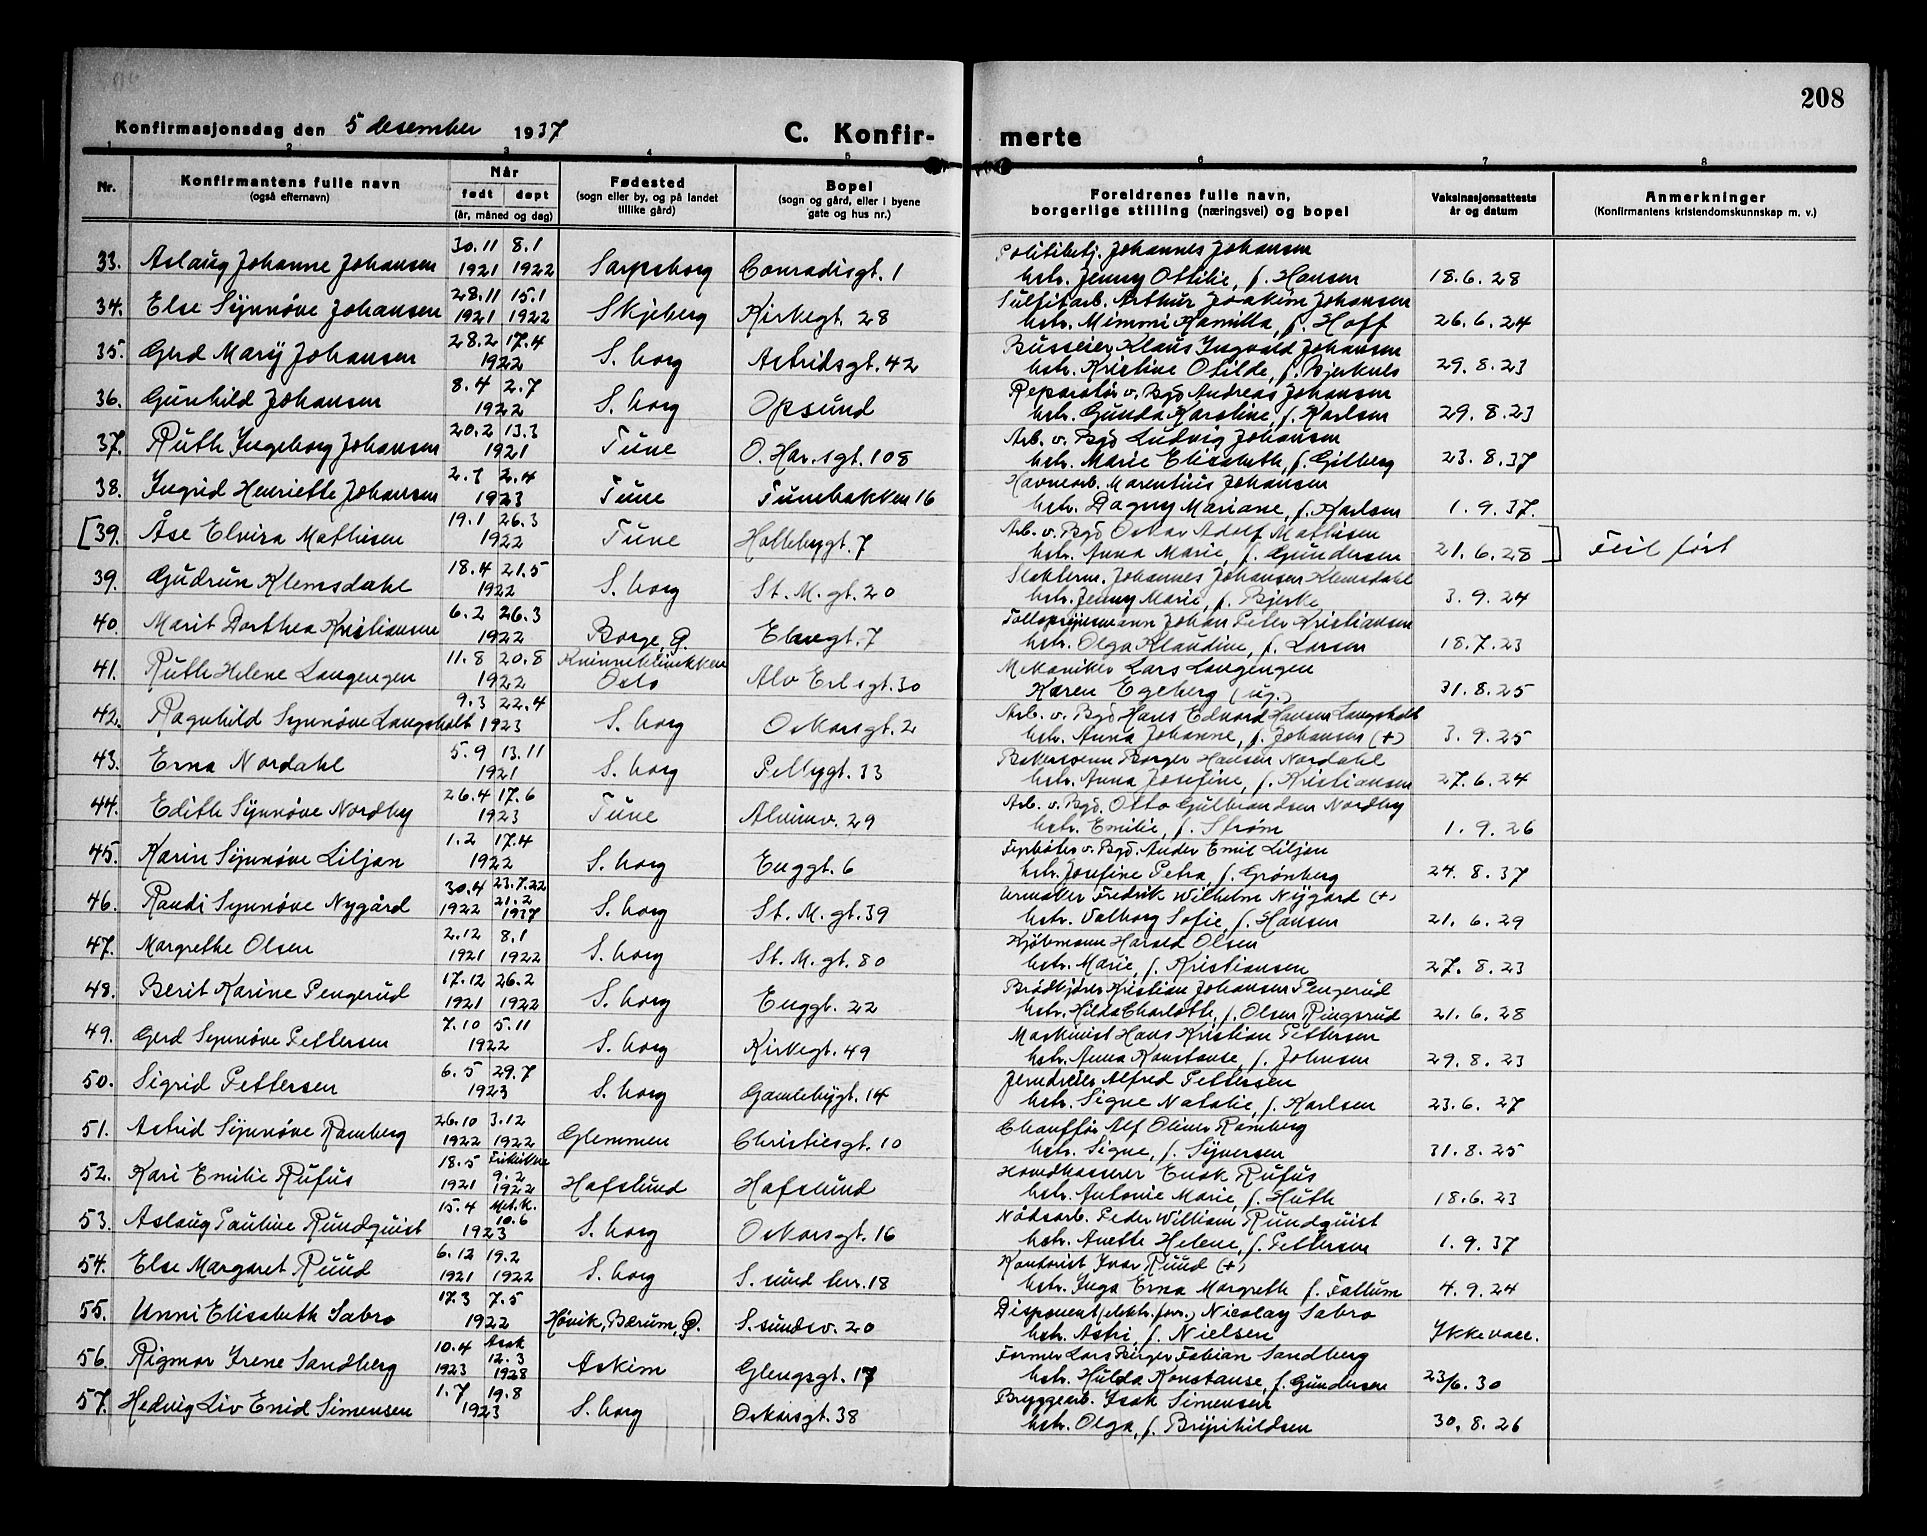 208
Konfirmasjonsdag den 5 desember 1937 C. Konfir- merte
1 2 3 4 5 6 7 8
Nr. Konfirmantens fulle navn (også efternavn) Når født døpt (år, måned og dag) Fødested (sogn eller by, og på landet tillike gård) Bopel (sogn og gård, eller i byene gate og hus nr.) Foreldrenes fulle navn, borgerlige stilling (næringsvei) og bopel Vaksinasjonsattests år og datum Anmerkninger (Konfirmantens kristendomskunnskap m. v.)
30.11 8.1 Politibetj. Johannes Johansen
33. Aslaug Johanne Johansen 1921 1922 Sarpsborg Conradisgt. 1 hstr. Jenny Ottilie, f. Hansen 18.6.28
28.11 15.1 Sulfitarb. Arthur Joakim Johansen
34. Else Synnøve Johansen 1921 1922 Skjeberg Kirkegt. 28 hstr. Mimmi Kamilla, f. Hoff 26.6.24
28.2 17.4 Busseier Klaus Ingvald Johansen
35. Gerd Mary Johansen 1922 S. borg Astridsgt. 42 hstr. Kristine Otilde, f. Bjerknes 29.8.23
8.4 2.7 Reparatør v. Bgd Andreas Johansen
36. Gunhild Johansen 1922 S. borg Opsund hstr. Gunda Karoline, f. Karlsen 29.8.23
20.2 13.3 Arb. v. Bgd Ludvig Johansen
37. Ruth Ingeborg Johansen 1921 Tune O. Har.sgt. 108 hstr. Marie Elisabeth, f. Gilberg 23.8.37
2.3 2.4 Havnearb. Marentius Johansen
38. Ingrid Henriette Johansen 1923 Tune Tunebakken 16 hstr. Dagny Mariane, f. Karlsen 1.9.37.
19.1 26.3 Arb. v. Bgd Oskar Adolf Mathisen
[39. Åse Elvira Mathisen 1922 Tune Hallebygt. 7 hstr. Anna Marie, f. Gundersen 21.6.28 ] Feil ført
18.4 21.5 Johannes Johansen Klemsdahl
39. Gudrun Klemsdahl 1922 S. borg St. M. gt. 20 hstr. Jenny Marie, f. Bjerke 3.9.24
6.2 26.3 Johan Peter Kristiansen
40. Marit Dorthea Kristiansen 1922 Borge, Ø. Ebnegt. 7 hstr. Olga Klaudine, f. Larsen 18.7.23
11.8 20.8 Kvinneklinikken Mekaniker Lars Langengen
41. Ruth Helene Langengen 1922 Oslo Alv Erl.sgt. 30 Karen Egeberg (ug.) 31.8.25
9.3 22.4 Arb. v. Bgd Hans Edvard Hansen Langsholt
42. Ragnhild Synnøve Langsholt 1923 S. borg Oskarsgt. 2 hstr. Anna Johanne, f. Johansen (+) 3.9.25
5.9 13.11 Bakersvenn Borger Hansen Nordahl
43. Erna Nordahl 1921 S. borg Pellygt. 33 hstr. Anna Josefine, f. Kristiansen 27.6.24
26.4 17.6 Arb. v. Bgd. Otto Gulbrandsen Nordby
44. Edith Synnøve Nordby 1923 Tune Alvimv. 29 hstr. Emilie, f. Strøm 1.9.26
1.2 17.4 v. Bgd. Anders Emil Liljan
45. Karin Synnøve Liljan 1922 S. borg Enggt. 6 hstr. Josefine Petra, f. Grønberg 24.8.37
30.4 23.7.22 Urmaker Fredrik Wilhelm Nygård (+)
46. Randi Synnøve Nygård 1922 21.2 1937 S. borg St. M. gt. 39 hstr. Valborg Sofie, f. Hansen 21.6.29
2.12 8.1 Kjøbmann Harald Olsen
47. Margrethe Olsen 1921 1922 S. borg St. M. gt. 80 hstr. Marie, f. Kristiansen 27.8.23
17.12 26.2 Brødkjører Kristian Johansen Pengerud
48. Berit Karine Pengerud 1921 1922 S. borg Enggt. 22 hstr. Hilda Charlotte, f. Olsen Ringsrud 21.6.28
7.10 5.11 Maskinist Hans Kristian Pettersen
49. Gerd Synnøve Pettersen 1922 S. borg Kirkegt. 49 hstr. Anna Konstanse, f. Johnsen 29.8.23
6.5 29.7 Jerndreier Alfred Pettersen
50. Sigrid Pettersen 1923 S. borg Gamlebygt. 14 hstr. Signe Natalie, f. Karlsen 23.6.27
26.10 3.12 Chauffør Alf Oliver Ramberg
51. Astrid Synnøve Ramberg 1922 1922 Glemmen Christiesgt. 10 hstr. Signe, f. Syversen 31.8.25
18.5 Frikirken Hovedkasserer Enok Rufus
52. Kari Emilie Rufus 1921 9.2 1922 Hafslund Hafslund hstr. Antonie Marie, f. Huth 18.6.23
15.4 Met.k. 10.6 Nødsarb. Peder William Rundquist
53. Aslaug Pauline Rundquist 1923 S. borg Oskarsgt. 16 hstr. Anette Helene, f. Pettersen 1.9.37
6.12 19.2 Kontorist Ivar Ruud (+)
54. Else Margaret Ruud 1921 1922 S. borg S. sund terr. 18 hstr. Inga Erna Margreth f. Fallum 4.9.24
17.3 7.5 Disponent (elektr. forr.) Nicolay Sabro
55. Unni Elisabeth Sabro 1922 Høvik, Bærum, Ø. S. sundsv. 20 hstr. Astri, f. Nielsen Ikke vacc.
10.4 Assk 12.3 Former Lars Birger Fabian Sandberg
56. Rigmor Irene Sandberg 1923 1928 Askim Glengsgt. 17 hstr. Hulda Konstanse, f. Gundersen 23/6.30
1.7 19.8 Bryggearb. Isak Simensen
57. Hedvig Liv Enid Simensen 1923 S. borg Oskarsgt. 38 hstr. Olga, f. Brynhildsen 30.8.26